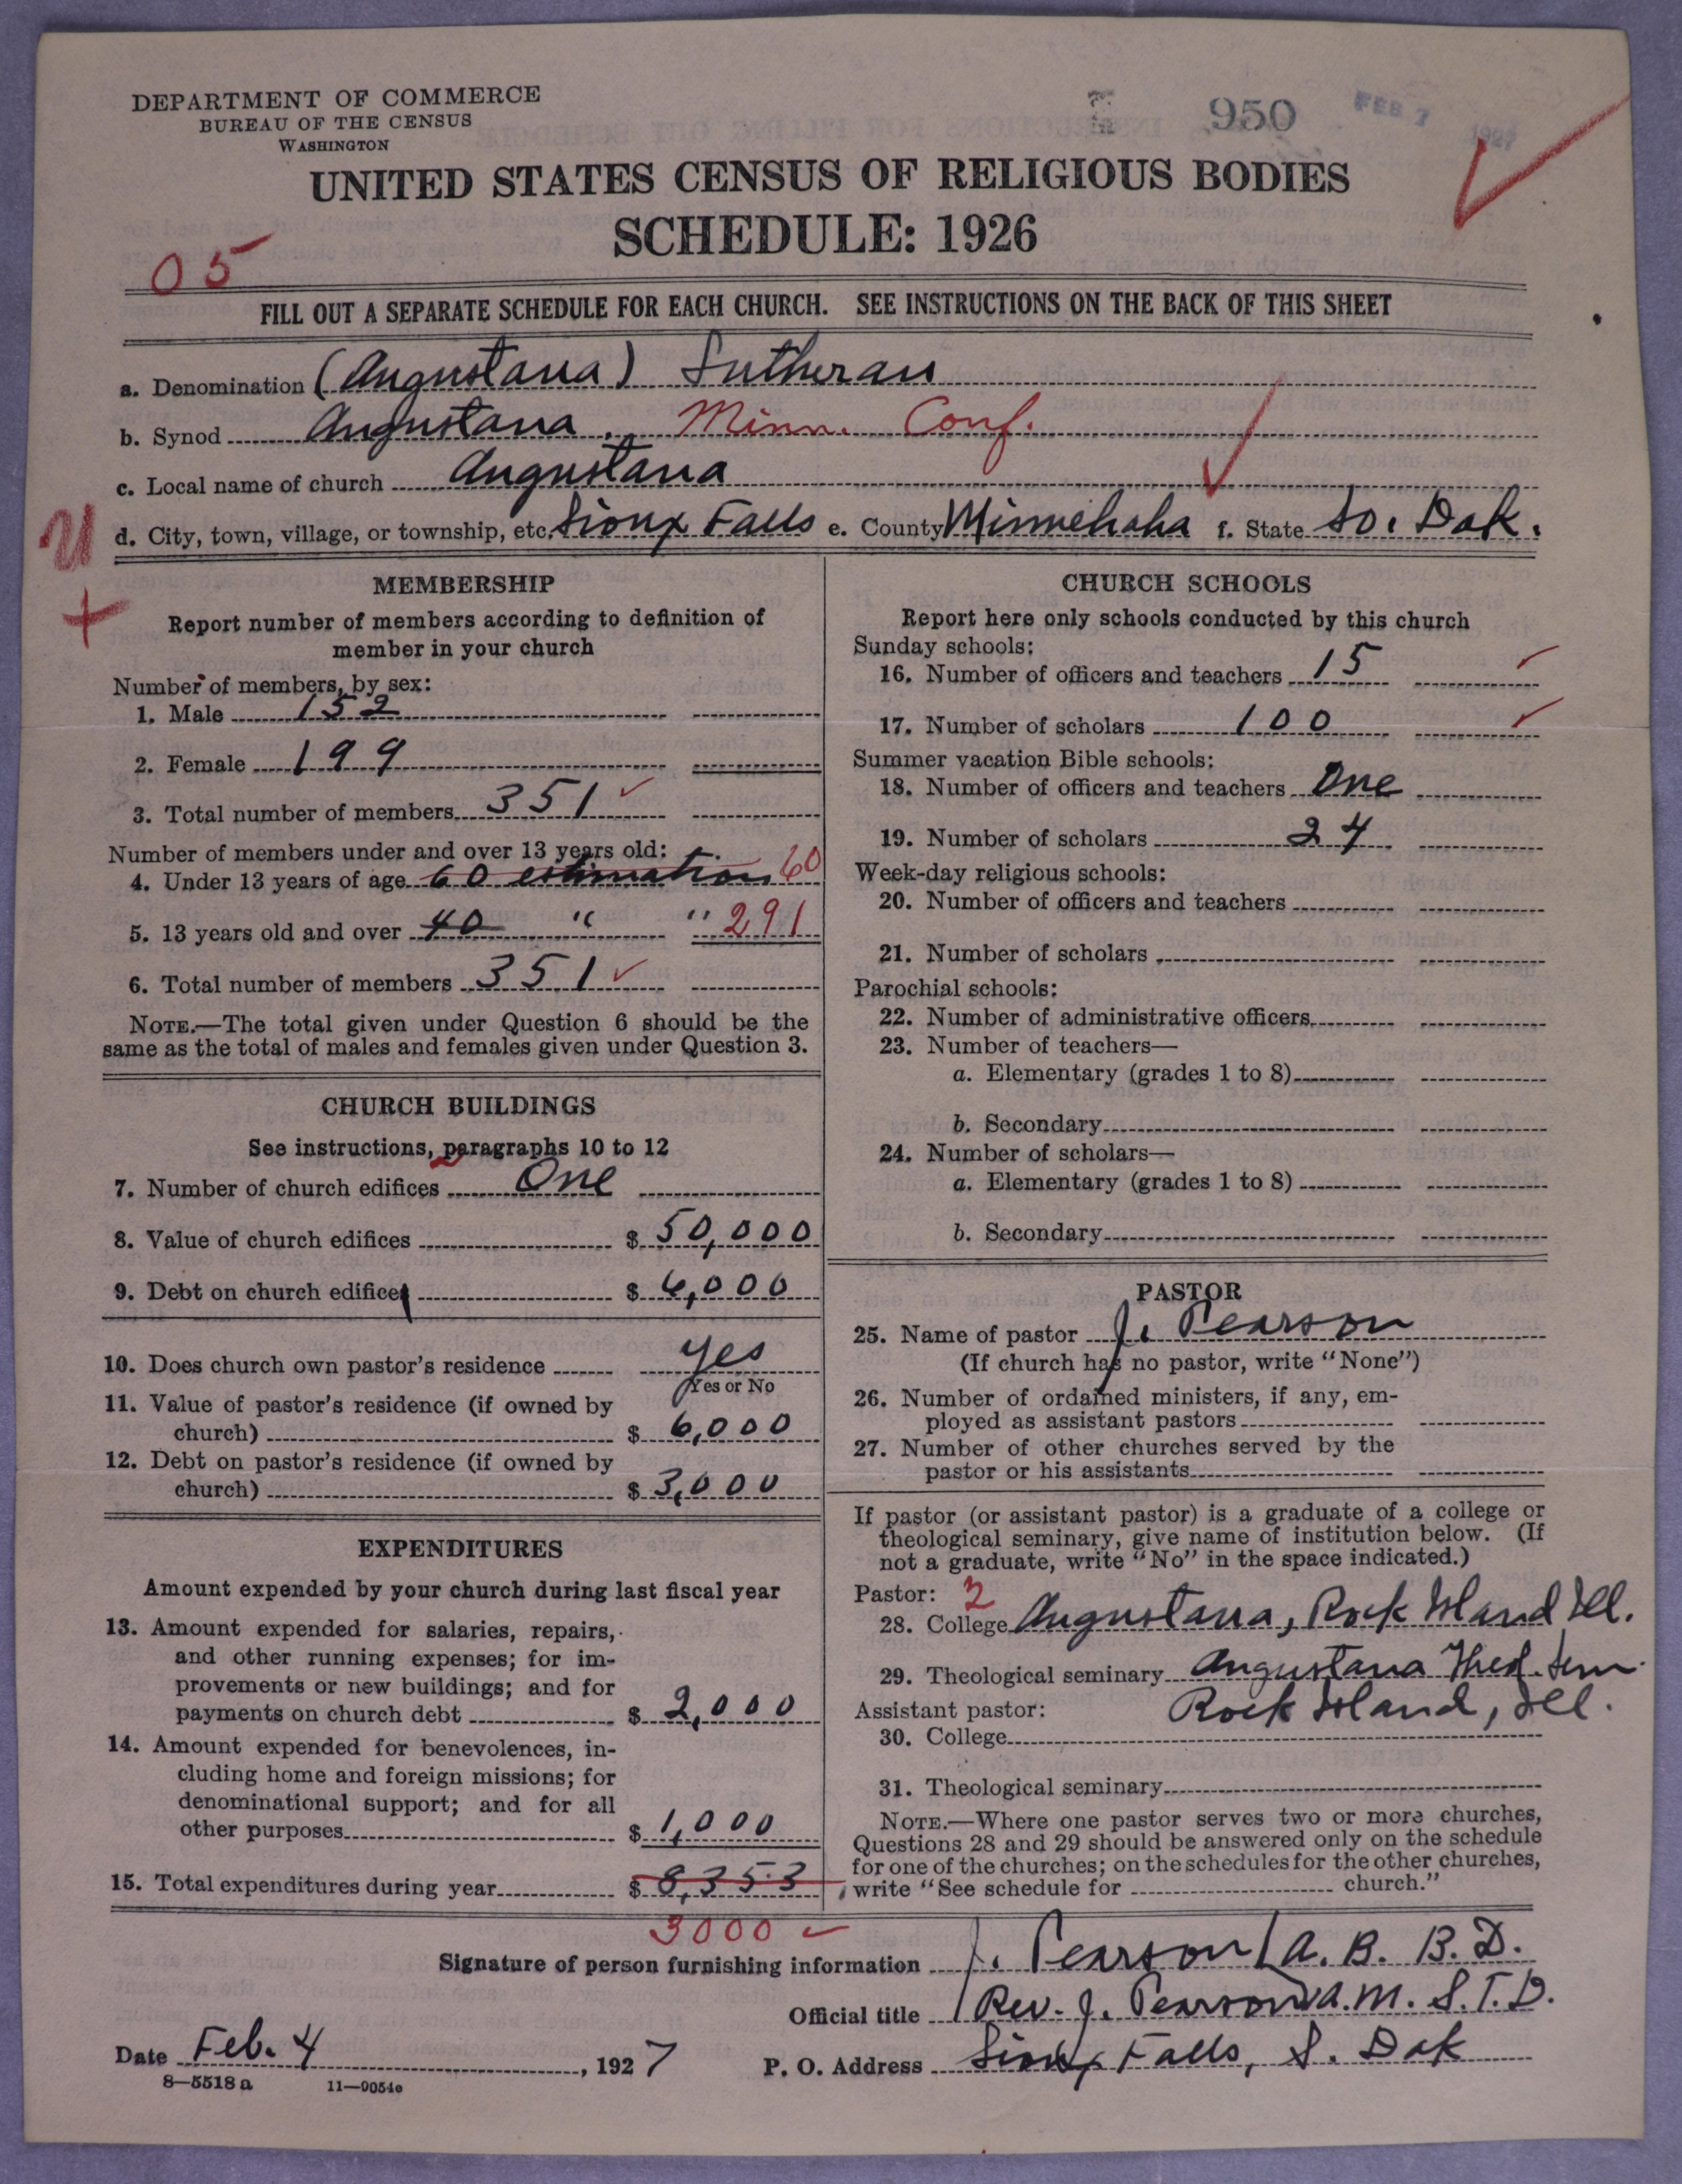 DEPARTMENT OF COMMERCE
BUREAU OF THE CENSUS
WASHINGTON
950
FEB 7 1927
UNITED STATES CENSUS OF RELIGIOUS BODIES
SCHEDULE: 1926
05
FILL OUT A SEPARATE SCHEDULE FOR EACH CHURCH. SEE INSTRUCTIONS ON THE BACK OF THIS SHEET
a. Denomination (Augustana) Lutheran
b. Synod Augustana. Minn. Conf.
c. Local name of church Augustana
d. City, town, village, or township, etc. Sioux Falls e. County Minnehaha f. State So. Dak.
U
+
MEMBERSHIP
Report number of members according to definition of
member in your church
Number of members, by sex:
1. Male 152
2. Female 199
3. Total number of members 351 ✓
Number of members under and over 13 years old:
4. Under 13 years of age 60 estimation 60
5. 13 years old and over 40 " " 291
6. Total number of members 351 ✓
NOTE.—The total given under Question 6 should be the
same as the total of males and females given under Question 3.
CHURCH BUILDINGS
See instructions, paragraphs 10 to 12
7. Number of church edifices One
8. Value of church edifices $ 50,000
9. Debt on church edifices $ 6,000
10. Does church own pastor's residence yes
Yes or No
11. Value of pastor's residence (if owned by
church) $ 6,000
12. Debt on pastor's residence (if owned by
church) $ 3,000
EXPENDITURES
Amount expended by your church during last fiscal year
13. Amount expended for salaries, repairs,
and other running expenses; for im-
provements or new buildings; and for
payments on church debt $ 2,000
14. Amount expended for benevolences, in-
cluding home and foreign missions; for
denominational support; and for all
other purposes $ 1,000
15. Total expenditures during year $ 8,353
3000 ✓
CHURCH SCHOOLS
Report here only schools conducted by this church
Sunday schools:
16. Number of officers and teachers 15 ✓
17. Number of scholars 100 ✓
Summer vacation Bible schools:
18. Number of officers and teachers One
19. Number of scholars 24
Week-day religious schools:
20. Number of officers and teachers
21. Number of scholars
Parochial schools:
22. Number of administrative officers
23. Number of teachers—
a. Elementary (grades 1 to 8)
b. Secondary
24. Number of scholars—
a. Elementary (grades 1 to 8)
b. Secondary
PASTOR
25. Name of pastor J. Pearson
(If church has no pastor, write "None")
26. Number of ordained ministers, if any, em-
ployed as assistant pastors
27. Number of other churches served by the
pastor or his assistants
If pastor (or assistant pastor) is a graduate of a college or
theological seminary, give name of institution below. (If
not a graduate, write "No" in the space indicated.)
Pastor: 2
28. College Augustana, Rock Island Ill.
29. Theological seminary Augustana Theol. Sem.
Assistant pastor: Rock Island, Ill.
30. College
31. Theological seminary
NOTE.—Where one pastor serves two or more churches,
Questions 28 and 29 should be answered only on the schedule
for one of the churches; on the schedules for the other churches,
write "See schedule for church."
Signature of person furnishing information J. Pearson A. B. B. D.
Official title Rev. J. Pearson A.M. S.T.D.
Date Feb. 4, 1927 P. O. Address Sioux Falls, S. Dak
8—5518 a 11—9054e